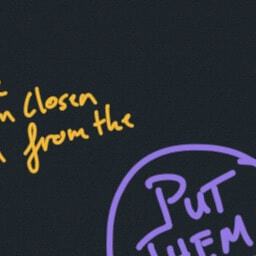 n closen
from the
PUT
THEM